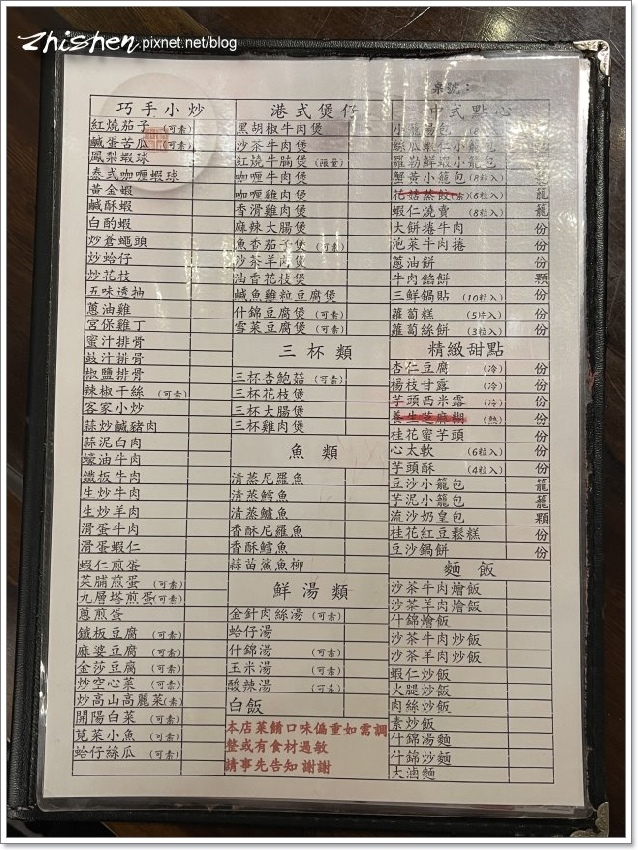 Zhishen.pixnet.net/blog
桌號：
巧手小炒
紅燒茄子 (可素)
鹹蛋苦瓜 (可素)
鳳梨蝦球
泰式咖喱蝦球
黃金蝦
鹹酥蝦
白酌蝦
炒蒼蠅頭
炒蛤仔
炒花枝
五味透抽
蔥油雞
宮保雞丁
蜜汁排骨
豉汁排骨
椒鹽排骨
辣椒干絲 (可素)
客家小炒
蒜炒鹹豬肉
蒜泥白肉
蠔油牛肉
鐵板牛肉
生炒牛肉
生炒羊肉
滑蛋牛肉
滑蛋蝦仁
蝦仁煎蛋
菜脯煎蛋 (可素)
九層塔煎蛋(可素)
蔥煎蛋
鐵板豆腐 (可素)
麻婆豆腐 (可素)
金莎豆腐 (可素)
炒空心菜 (可素)
炒高山高麗菜(素)
開陽白菜 (可素)
莧菜小魚 (可素)
蛤仔絲瓜 (可素)
港式煲仔
黑胡椒牛肉煲
沙茶牛肉煲
紅燒牛腩煲 (限量)
咖喱牛肉煲
咖喱雞肉煲
香滑雞肉煲
麻辣大腸煲
魚香茄子煲 (可素)
沙茶羊肉煲
油香花枝煲
鹹魚雞粒豆腐煲
什錦豆腐煲 (可素)
雪菜豆腐煲 (可素)
三杯類
三杯杏鮑菇 (可素)
三杯花枝煲
三杯大腸煲
三杯雞肉煲
魚類
清蒸尼羅魚
清蒸鱈魚
清蒸鱸魚
香酥尼羅魚
香酥鱈魚
蒜苗鯊魚柳
鮮湯類
金針肉絲湯 (可素)
蛤仔湯
什錦湯 (可素)
玉米湯 (可素)
酸辣湯 (可素)
白飯
本店菜餚口味偏重如需調
整或有食材過敏
請事先告知 謝謝
中式點心
小籠湯包
絲瓜蝦仁小籠包
羅勒鮮蝦小籠包
蟹黃小籠包 (8粒入) 籠
花菇蒸餃(素)(6粒入) 籠
蝦仁燒賣 (8粒入) 籠
大餅捲牛肉 份
泡菜牛肉捲 份
蔥油餅 份
牛肉餡餅 顆
三鮮鍋貼 (10粒入) 份
蘿蔔糕 (5片入) 份
蘿蔔絲餅 (3粒入) 份
精緻甜點
杏仁豆腐 (冷) 份
楊枝甘露 (冷) 份
芋頭西米露 (冷) 份
養生芝麻糊 (熱) 份
桂花蜜芋頭 份
心太軟 (6粒入) 份
芋頭酥 (4粒入) 份
豆沙小籠包 籠
芋泥小籠包 籠
流沙奶皇包 顆
桂花紅豆鬆糕 份
豆沙鍋餅 份
麵飯
沙茶牛肉燴飯
沙茶羊肉燴飯
什錦燴飯
沙茶牛肉炒飯
沙茶羊肉炒飯
蝦仁炒飯
火腿炒飯
肉絲炒飯
素炒飯
什錦湯麵
什錦炒麵
大滷麵